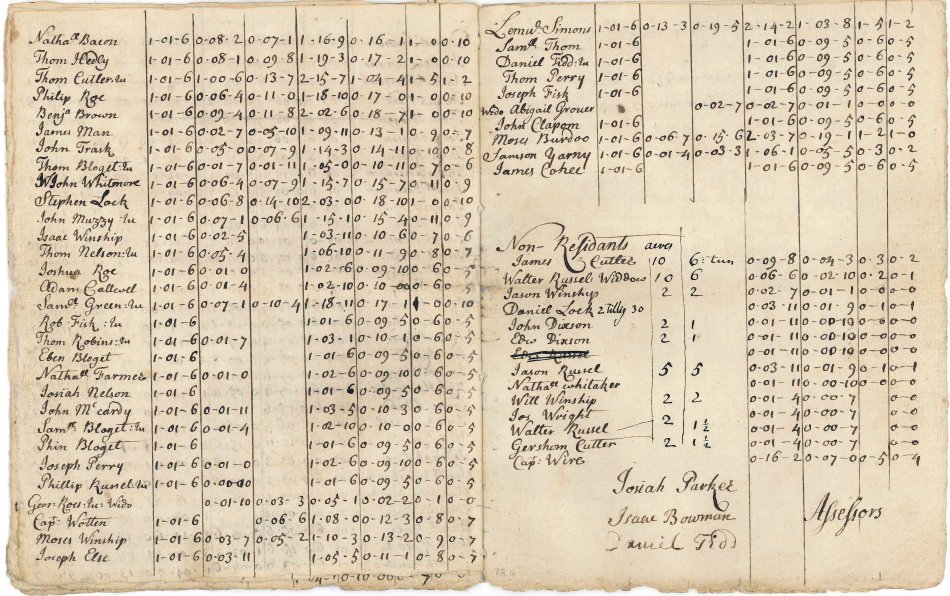 Nathall Bacon 1-01-6 0-08-2 0-07-1 1-16-9 0-16-1 1-0-0 0-10
Thom Hedly 1-01-6 0-08-1 0-09-8 1-19-3 0-17-2 1-0-0 0-10
Thom Cutler:Ju 1-01-6 1-00-6 0-13-7 2-15-7 1-04-4 1-5 1-2
Philip Roe 1-01-6 0-06-4 0-11-0 1-18-10 0-17-0 1-0-0 0-10
Benja Brown 1-01-6 0-09-4 0-11-8 2-02-6 0-18-7 1-0-0 0-10
James Man 1-01-6 0-02-7 0-05-10 1-09-11 0-13-1 0-9 0-7
John Trask 1-01-6 0-05-0 0-07-9 1-14-3 0-14-11 0-10 0-8
Thom Bloget:Ju 1-01-6 0-01-7 0-01-11 1-05-0 0-10-11 0-7 0-6
John Whitmore 1-01-6 0-06-4 0-07-9 1-15-7 0-15-7 0-11 0-9
Stephen Lock 1-01-6 0-06-8 0-14-10 2-03-0 0-18-10 1-0-0 0-10
John Muzzy:Ju 1-01-6 0-07-1 0-06-6 1-15-1 0-15-4 0-11 0-9
Isaac Winship 1-01-6 0-02-5 1-03-11 0-10-6 0-7 0-6
Thom Nelson:Ju 1-01-6 0-05-4 1-06-10 0-11-9 0-8 0-7
Joshua Roe 1-01-6 0-01-0 1-02-6 0-09-10 0-6 0-5
Adam Callwel 1-01-6 0-01-4 1-02-10 0-10-0 0-6 0-5
Samll Green:Ju 1-01-6 0-07-1 0-10-4 1-18-11 0-17-1 1-0-0 0-10
Rob Fisk:Ju 1-01-6 1-01-6 0-09-5 0-6 0-5
Thom Robins:Ju 1-01-6 0-01-7 1-03-1 0-10-1 0-6 0-5
Eben Bloget 1-01-6 1-01-6 0-09-5 0-6 0-5
Nathall Farmer 1-01-6 0-01-0 1-02-6 0-09-10 0-6 0-5
Josiah Nelson 1-01-6 1-01-6 0-09-5 0-6 0-5
John Mccardy 1-01-6 0-01-11 1-03-5 0-10-3 0-6 0-5
Samll Bloget:Ju 1-01-6 0-01-4 1-02-10 0-10-0 0-6 0-5
Phin Bloget 1-01-6 1-01-6 0-09-5 0-6 0-5
Joseph Perry 1-01-6 0-01-0 1-02-6 0-09-10 0-6 0-5
Phillip Russel:Ju 1-01-6 1-01-6 0-09-5 0-6 0-5
Geor:Roes:Ju:Wido 0-01-10 0-03-3 0-05-1 0-02-2 0-1 0-0
Cap: Wotten 1-01-6 0-06-6 1-08-0 0-12-3 0-8 0-7
Moses Winship 1-01-6 0-03-7 0-05-2 1-10-3 0-13-2 0-9 0-7
Joseph Else 1-01-6 0-03-11 1-05-5 0-11-1 0-8 0-7
Lemu: Simons 1-01-6 0-13-3 0-19-5 2-14-2 1-03-8 1-5 1-2
Samll Thom 1-01-6 1-01-6 0-09-5 0-6 0-5
Daniel Tidd:Ju 1-01-6 1-01-6 0-09-5 0-6 0-5
Thom Perry 1-01-6 1-01-6 0-09-5 0-6 0-5
Joseph Fisk 1-01-6 1-01-6 0-09-5 0-6 0-5
Wido Abigail Grover 0-02-7 0-02-7 0-01-1 0-0-0 0-0
John Clapom 1-01-6 1-01-6 0-09-5 0-6 0-5
Moses Burdoo 1-01-6 0-06-7 0-15-6 2-03-7 0-19-1 1-2 1-0
Jamson Yarny 1-01-6 0-01-4 0-03-3 1-06-1 0-05-5 0-3 0-2
James Cohee 1-01-6 1-01-6 0-09-5 0-6 0-5
Non-Residants acres
James Cutler 10 6: tun 0-09-8 0-04-3 0-3 0-2
Walter Russel Widdow 10 6 0-06-6 0-02-10 0-2 0-1
Jason Winship 2 2 0-02-7 0-01-1 0-0 0-0
Daniel Lock 30 0-03-11 0-01-9 0-1 0-1
John Dixson 2 1 0-01-11 0-0
Edw Dixson 2 1 0-01-11 0-0
Jason Russel 5 5 0-03-11 0-01-9 0-1 0-1
Nathall whitaker 0-01-11 0-00-10 0-0
Will Winship 2 2 0-01-4 0-00-7 0-0
Jos Wright 0-01-4 0-00-7 0-0
Walter Russel 2 1½ 0-01-4 0-00-7 0-0
Gershom Cutter 2 1½ 0-01-4 0-00-7 0-0
Cap: Wire 0-16-2 0-07-0 0-5 0-4
Josiah Parker
Isaac Bowman Assessors
Daniel Tidd